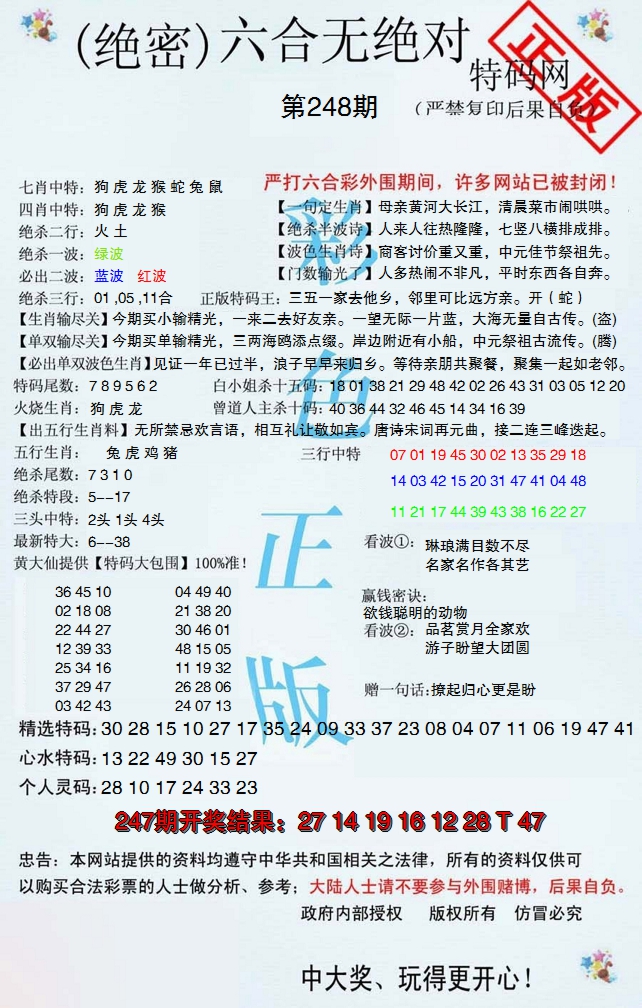 (绝密)六合无绝对
特码网
正版
第248期
(严禁复印后果自负)
严打六合彩外围期间，许多网站已被封闭！
七肖中特：狗 虎 龙 猴 蛇 兔 鼠
【一句定生肖】母亲黄河大长江，清晨菜市闹哄哄。
四肖中特：狗 虎 龙 猴
【绝杀半波诗】人来人往热隆隆，七竖八横排成排。
绝杀二行：火 土
【波色生肖诗】商客讨价重又重，中元佳节祭祖先。
绝杀一波：绿波
【门数输光了】人多热闹不非凡，平时东西各自奔。
必出二波：蓝波 红波
绝杀三行：01 ,05 ,11合 正版特码王：三五一家去他乡，邻里可比远方亲。开（ 蛇 ）
【生肖输尽关】今期买小输精光，一来二去好友亲。一望无际一片蓝，大海无量自古传。(盗)
【单双输尽关】今期买单输精光，三两海鸥添点缀。岸边附近有小船，中元祭祖古流传。(腾)
【必出单双波色生肖】见证一年已过半，浪子早早来归乡。等待亲朋共聚餐，聚集一起如老邻。
特码尾数：7 8 9 5 6 2 白小姐杀十五码：18 01 38 21 29 48 42 02 26 43 31 03 05 12 20
火烧生肖：狗 虎 龙 曾道人主杀十码：40 36 44 32 46 45 14 34 16 39
【出五行生肖料】无所禁忌欢言语，相互礼让敬如宾。唐诗宋词再元曲，接二连三峰迭起。
五行生肖： 兔 虎 鸡 猪 三行中特 07 01 19 45 30 02 13 35 29 18
绝杀尾数：7 3 1 0
14 03 42 15 20 31 47 41 04 48
绝杀特段：5--17
11 21 17 44 39 43 38 16 22 27
三头中特：2头 1头 4头
最新特大：6--38
看波①：琳琅满目数不尽
名家名作各其艺
黄大仙提供【特码大包围】100%准！
36 45 10 04 49 40
02 18 08 21 38 20
22 44 27 30 46 01
12 39 33 48 15 05
25 34 16 11 19 32
37 29 47 26 28 06
03 42 43 24 07 13
赢钱密诀：
欲钱聪明的动物
看波②：品茗赏月全家欢
游子盼望大团圆
赠一句话:撩起归心更是盼
彩色正版
精选特码:30 28 15 10 27 17 35 24 09 33 37 23 08 04 07 11 06 19 47 41
心水特码:13 22 49 30 15 27
个人灵码:28 10 17 24 33 23
247期开奖结果：27 14 19 16 12 28 T 47
忠告：本网站提供的资料均遵守中华共和国相关之法律，所有的资料仅供可
以购买合法彩票的人士做分析、参考；大陆人士请不要参与外围赌博，后果自负。
政府内部授权 版权所有 仿冒必究
中大奖、玩得更开心！